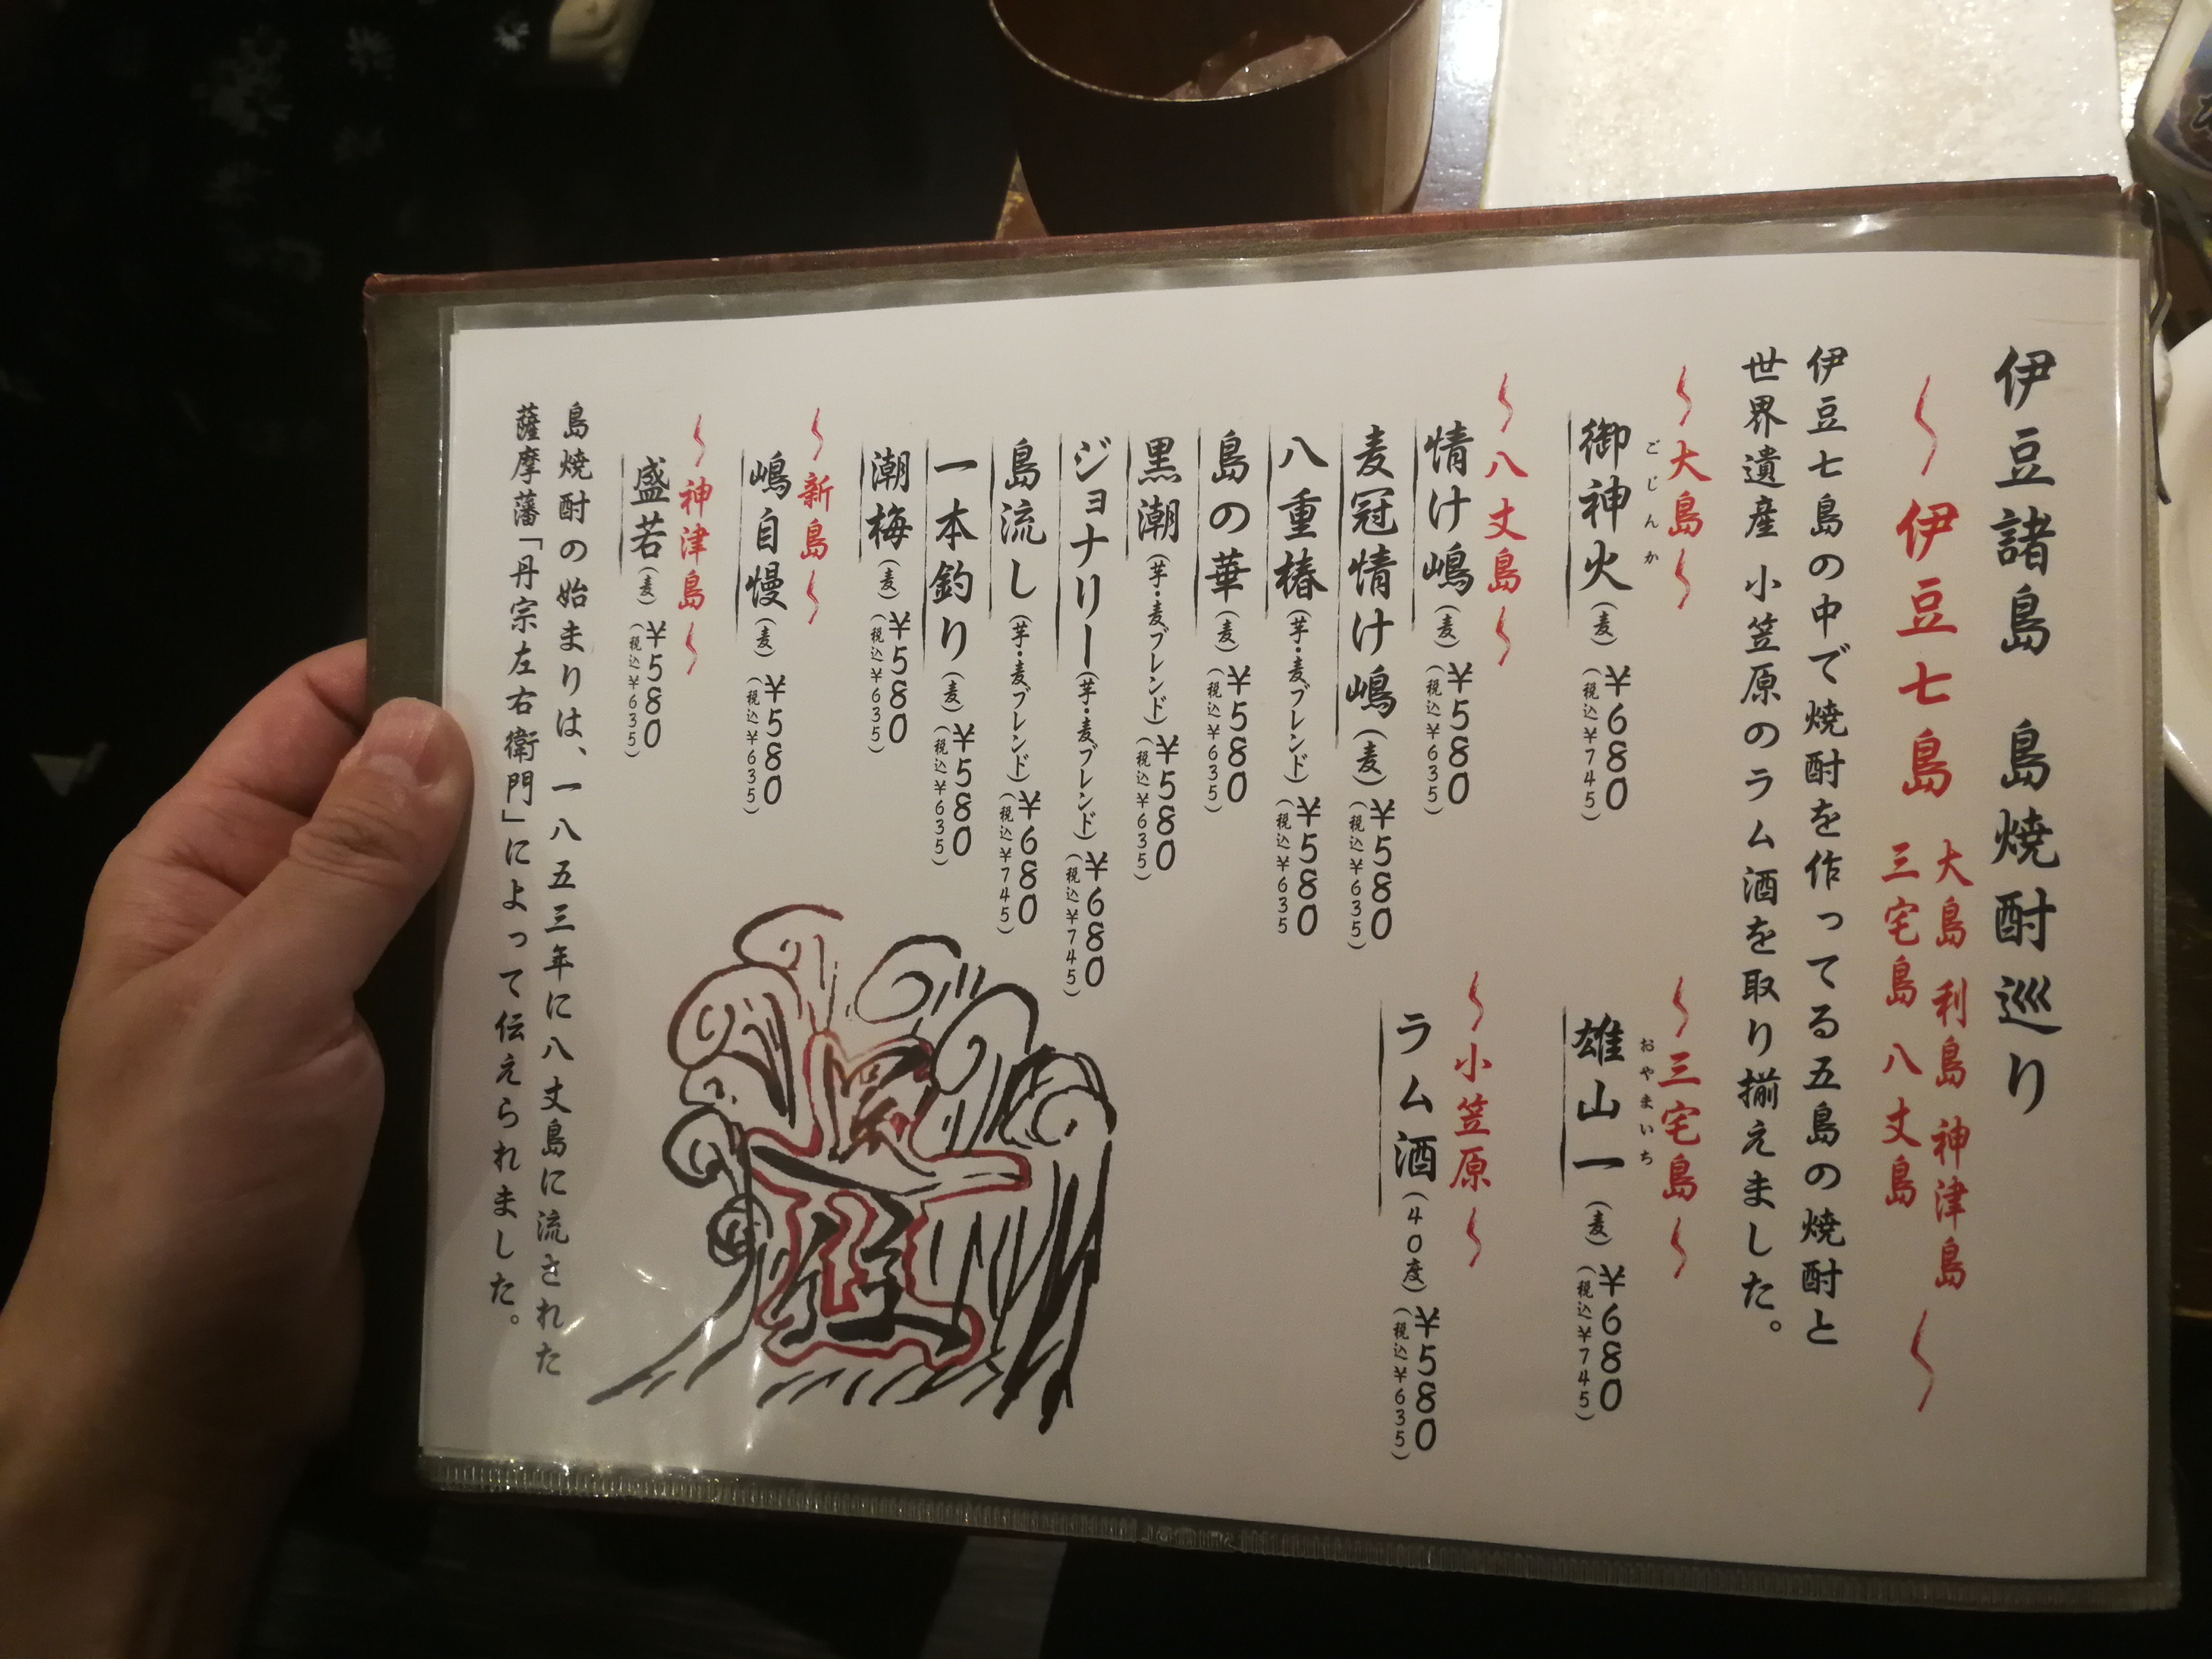 伊豆諸島 島焼酎巡り
〜伊豆七島 大島 利島 神津島
三宅島 八丈島〜
伊豆七島の中で焼酎を作ってる五島の焼酎と
世界遺産 小笠原のラム酒を取り揃えました。
〜大島〜
ごじんか
御神火(麦)¥680
(税込¥745)
〜三宅島〜
おやまいち
雄山一(麦)¥680
(税込¥745)
〜八丈島〜
情け嶋(麦)¥580
(税込¥635)
麦冠情け嶋(麦)¥580
(税込¥635)
八重椿(芋・麦ブレンド)¥580
(税込¥635
島の華(麦)¥580
(税込¥635)
黒潮(芋・麦ブレンド)¥580
(税込¥635)
ジョナリー(芋・麦ブレンド)¥680
(税込¥745)
島流し(芋・麦ブレンド)¥680
(税込¥745)
一本釣り(麦)¥580
(税込¥635)
潮梅(麦)¥580
(税込¥635)
〜小笠原〜
ラム酒(40度)¥580
(税込¥635)
〜新島〜
嶋自慢(麦)¥580
(税込¥635)
〜神津島〜
盛若(麦)¥580
(税込¥635)
島焼酎の始まりは、一八五三年に八丈島に流された
薩摩藩「丹宗左右衛門」によって伝えられました。